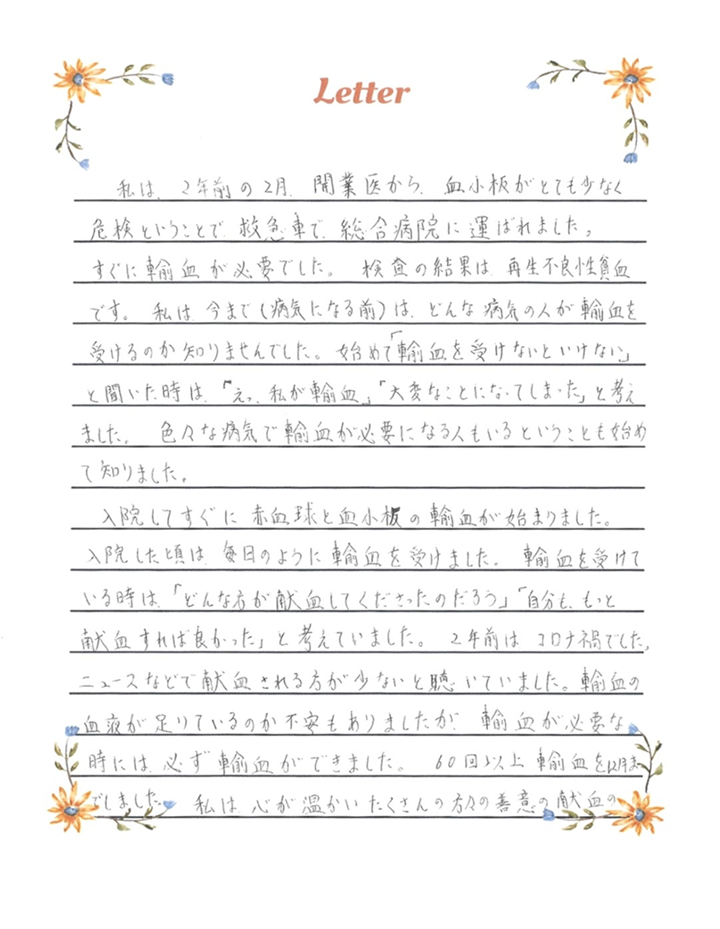 Letter
私は、2年前の2月、開業医から、血小板がとても少なく
危検ということで救急車で、総合病院に運ばれました。
すぐに輸血が必要でした。 検査の結果は、再生不良性貧血
です。 私は、今まで(病気になる前)は、どんな病気の人が輸血を
受けるのか知りませんでした。始めて「輸血を受けないといけない」
と聞いた時は、「えっ、私が輸血」「大変なことになってしまった」と考え
ました。 色々な病気で輸血が必要になる人もいるということも始め
て知りました。
入院してすぐに赤血球と血小板の輸血が始まりました。
入院した頃は、毎日のように輸血を受けました。 輸血を受けて
いる時は、「どんな方が献血してくださったのだろう」「自分も、もっと
献血すれば良かった」と考えていました。 2年前は コロナ禍でした。
ニュースなどで献血される方が少ないと聴いていました。輸血の
血液が足りているのか不安もありましたが、輸血が必要な
時には、必ず輸血ができました。 60回以上輸血を12月ま
でしました。 私は、心が温かいたくさんの方々の善意の献血の